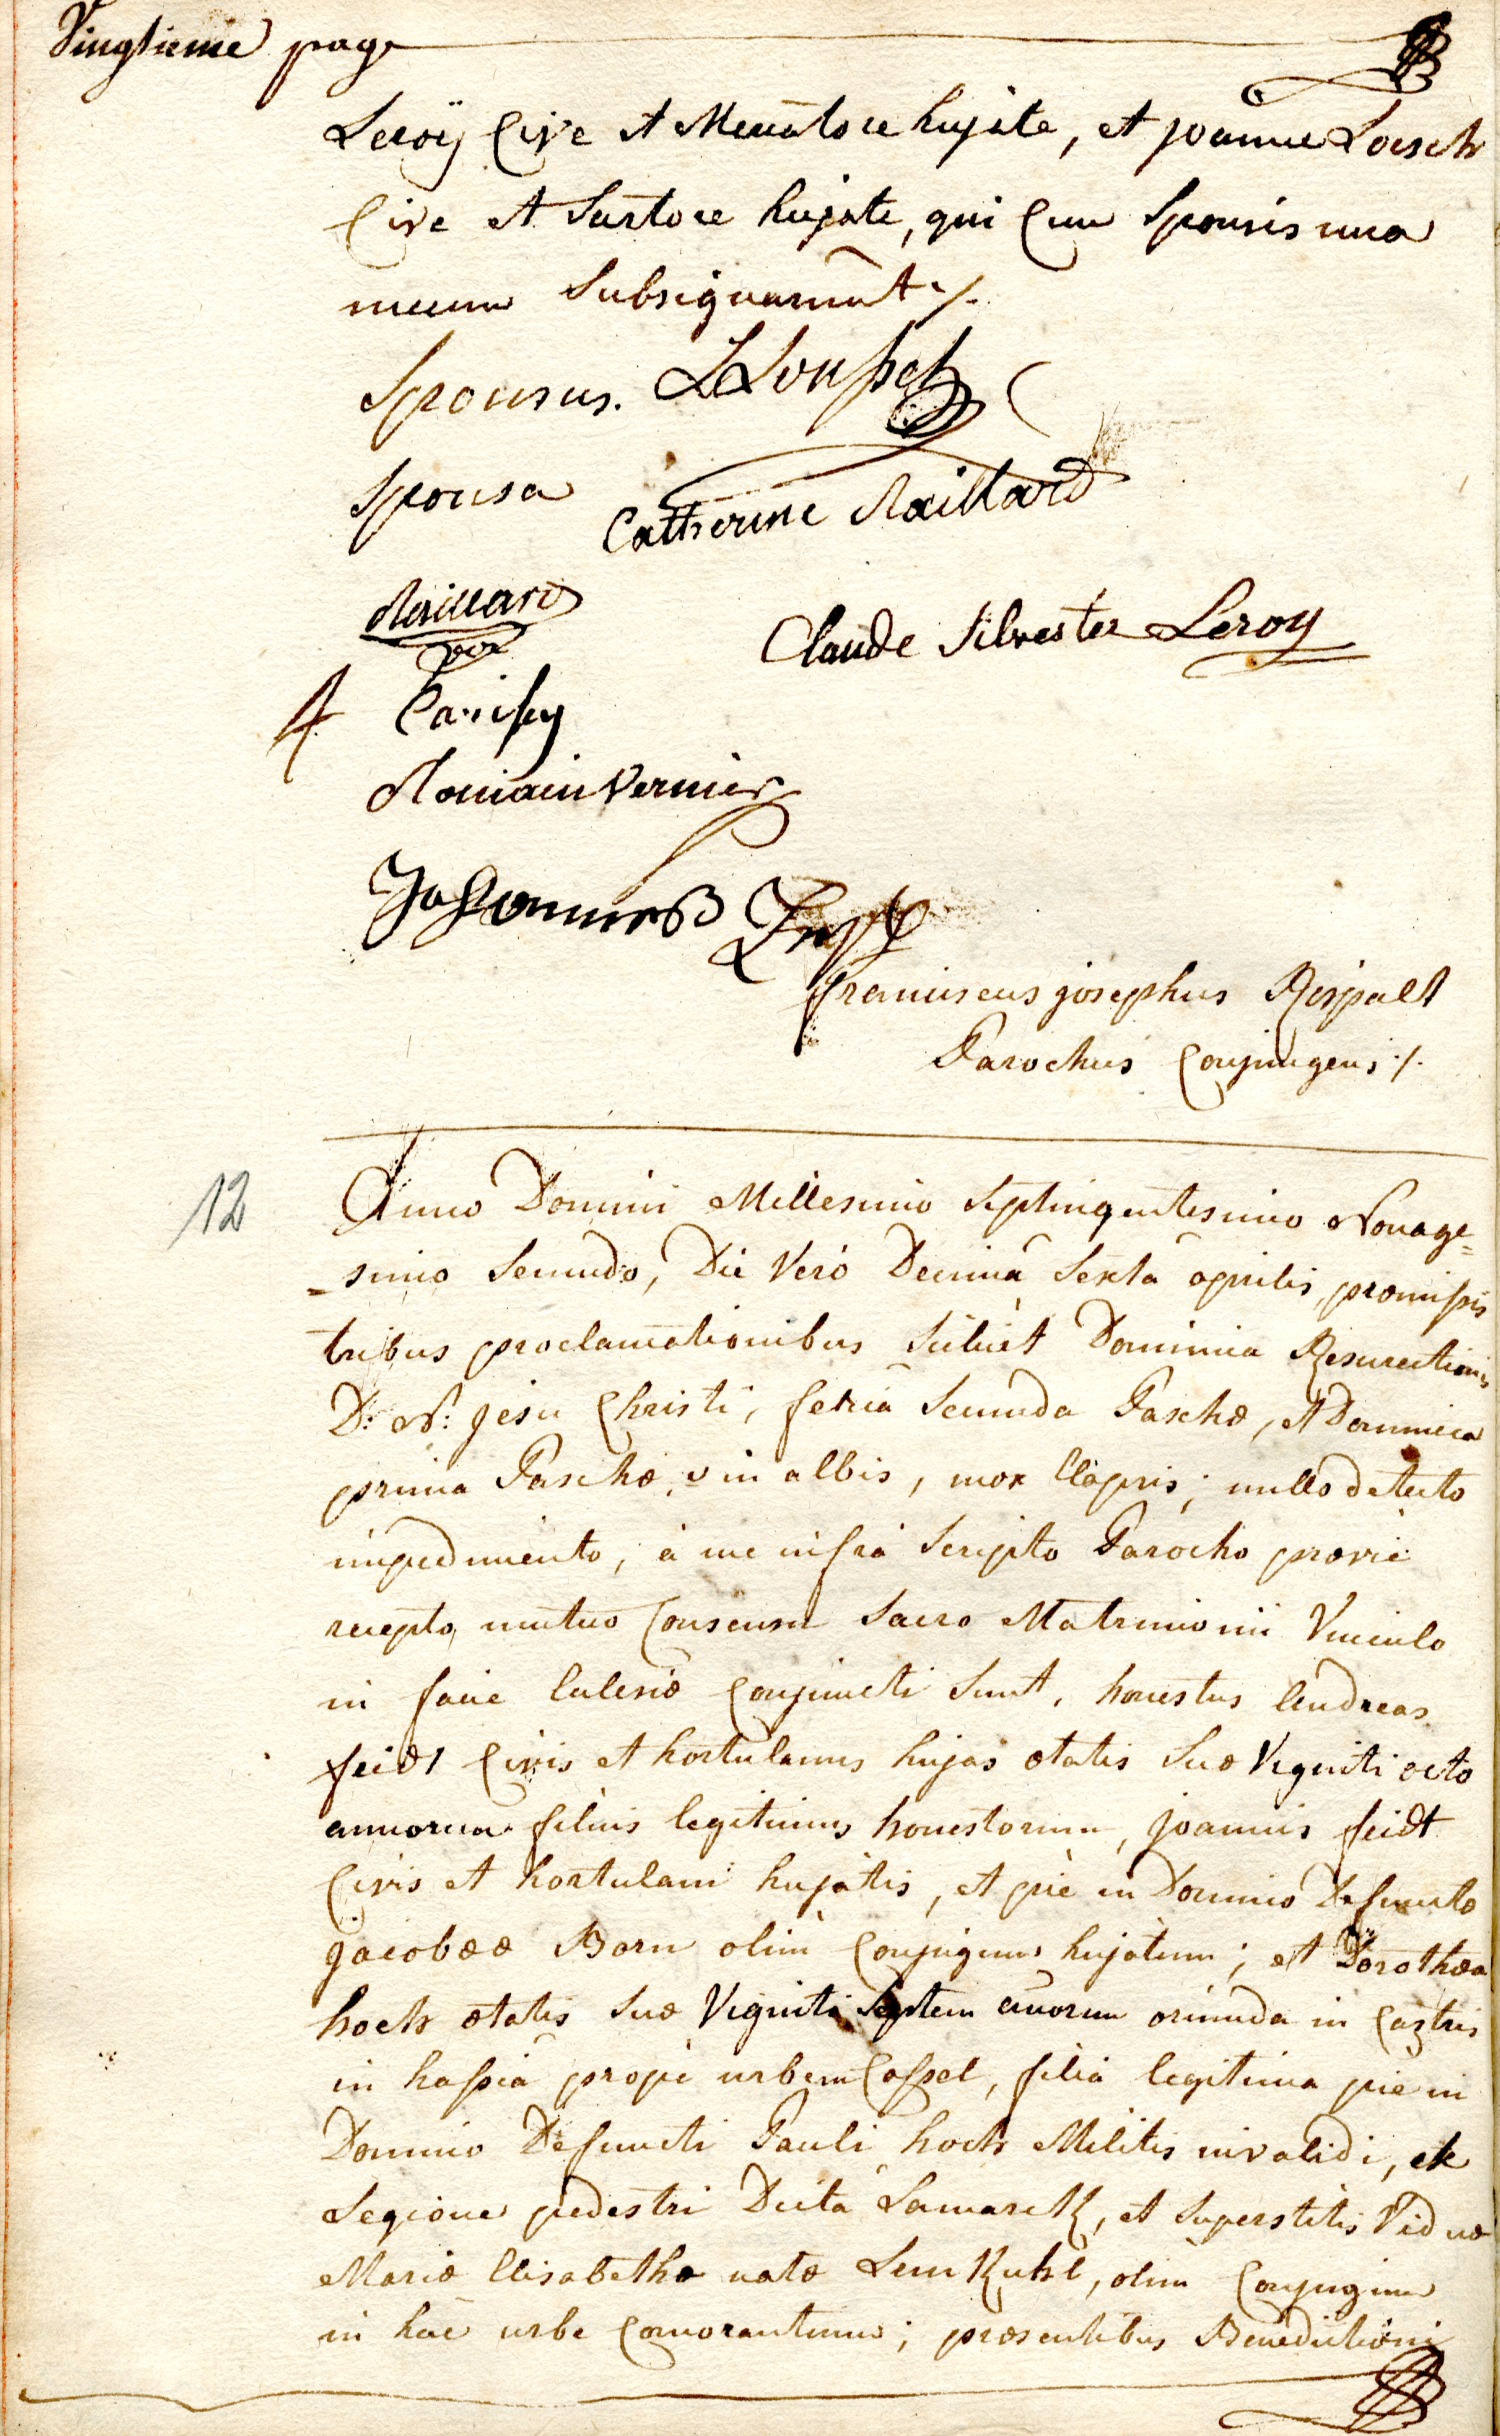 Vingtieme page
Leroÿ Cive et Mercatore hujate, et joanne Loesch
Cive et Sartore hujate, qui Cum Sponsis una
mecum Subsignarunt ./.
Sponsus. LLoußel
Sponsa Catherine Maillard
Maillard
Claude Silvester Leroy
4 Parisey
Romain Vernier
Johannes
franciscus josephus Rispalt
Parochus Conjungens ./.
12 Anno Domini Millesimo Septingentesimo Nonage=
=simo Secundo, Die Verò Decimâ Sextâ aprilis, præmißis
tribus proclamationibus Scilicèt Dominica Resurectionis
D: N: jesu Christi, feria Secunda Paschæ, et Dominica
prima Paschæ, v in albis, mox Elapsis; nullo detecto
impedimento, à me infra Scripto Parocho præviè
recepto mutuo Consensu Sacro Matrimonii Vinculo
in facie Eclesiæ Conjuncti Sunt, honestus Andreas
feidt Civis et hortulanus hujas ætatis Suæ Viginti octo
annorum filius legitimus honestorum, joannis feidt
Civis et hortulani hujatis, et piè in Domino Defunctæ
jacobææ Born olim Conjugum hujatum; et Dorothæa
hoch ætatis Suæ Viginti Septem annorum oriunda in Castris
in haßia propè urbem Caßel, filia legitima piè in
Domino Defuncti Pauli hoch Militis invalidi, ex
Legione pedestri Dicta Lamarck, et Superstitis Viduæ
Mariæ Elisabethæ natæ Lem Kuhl, olim Conjugum
in hac urbe Comorantium; præsentibus Benedictioni